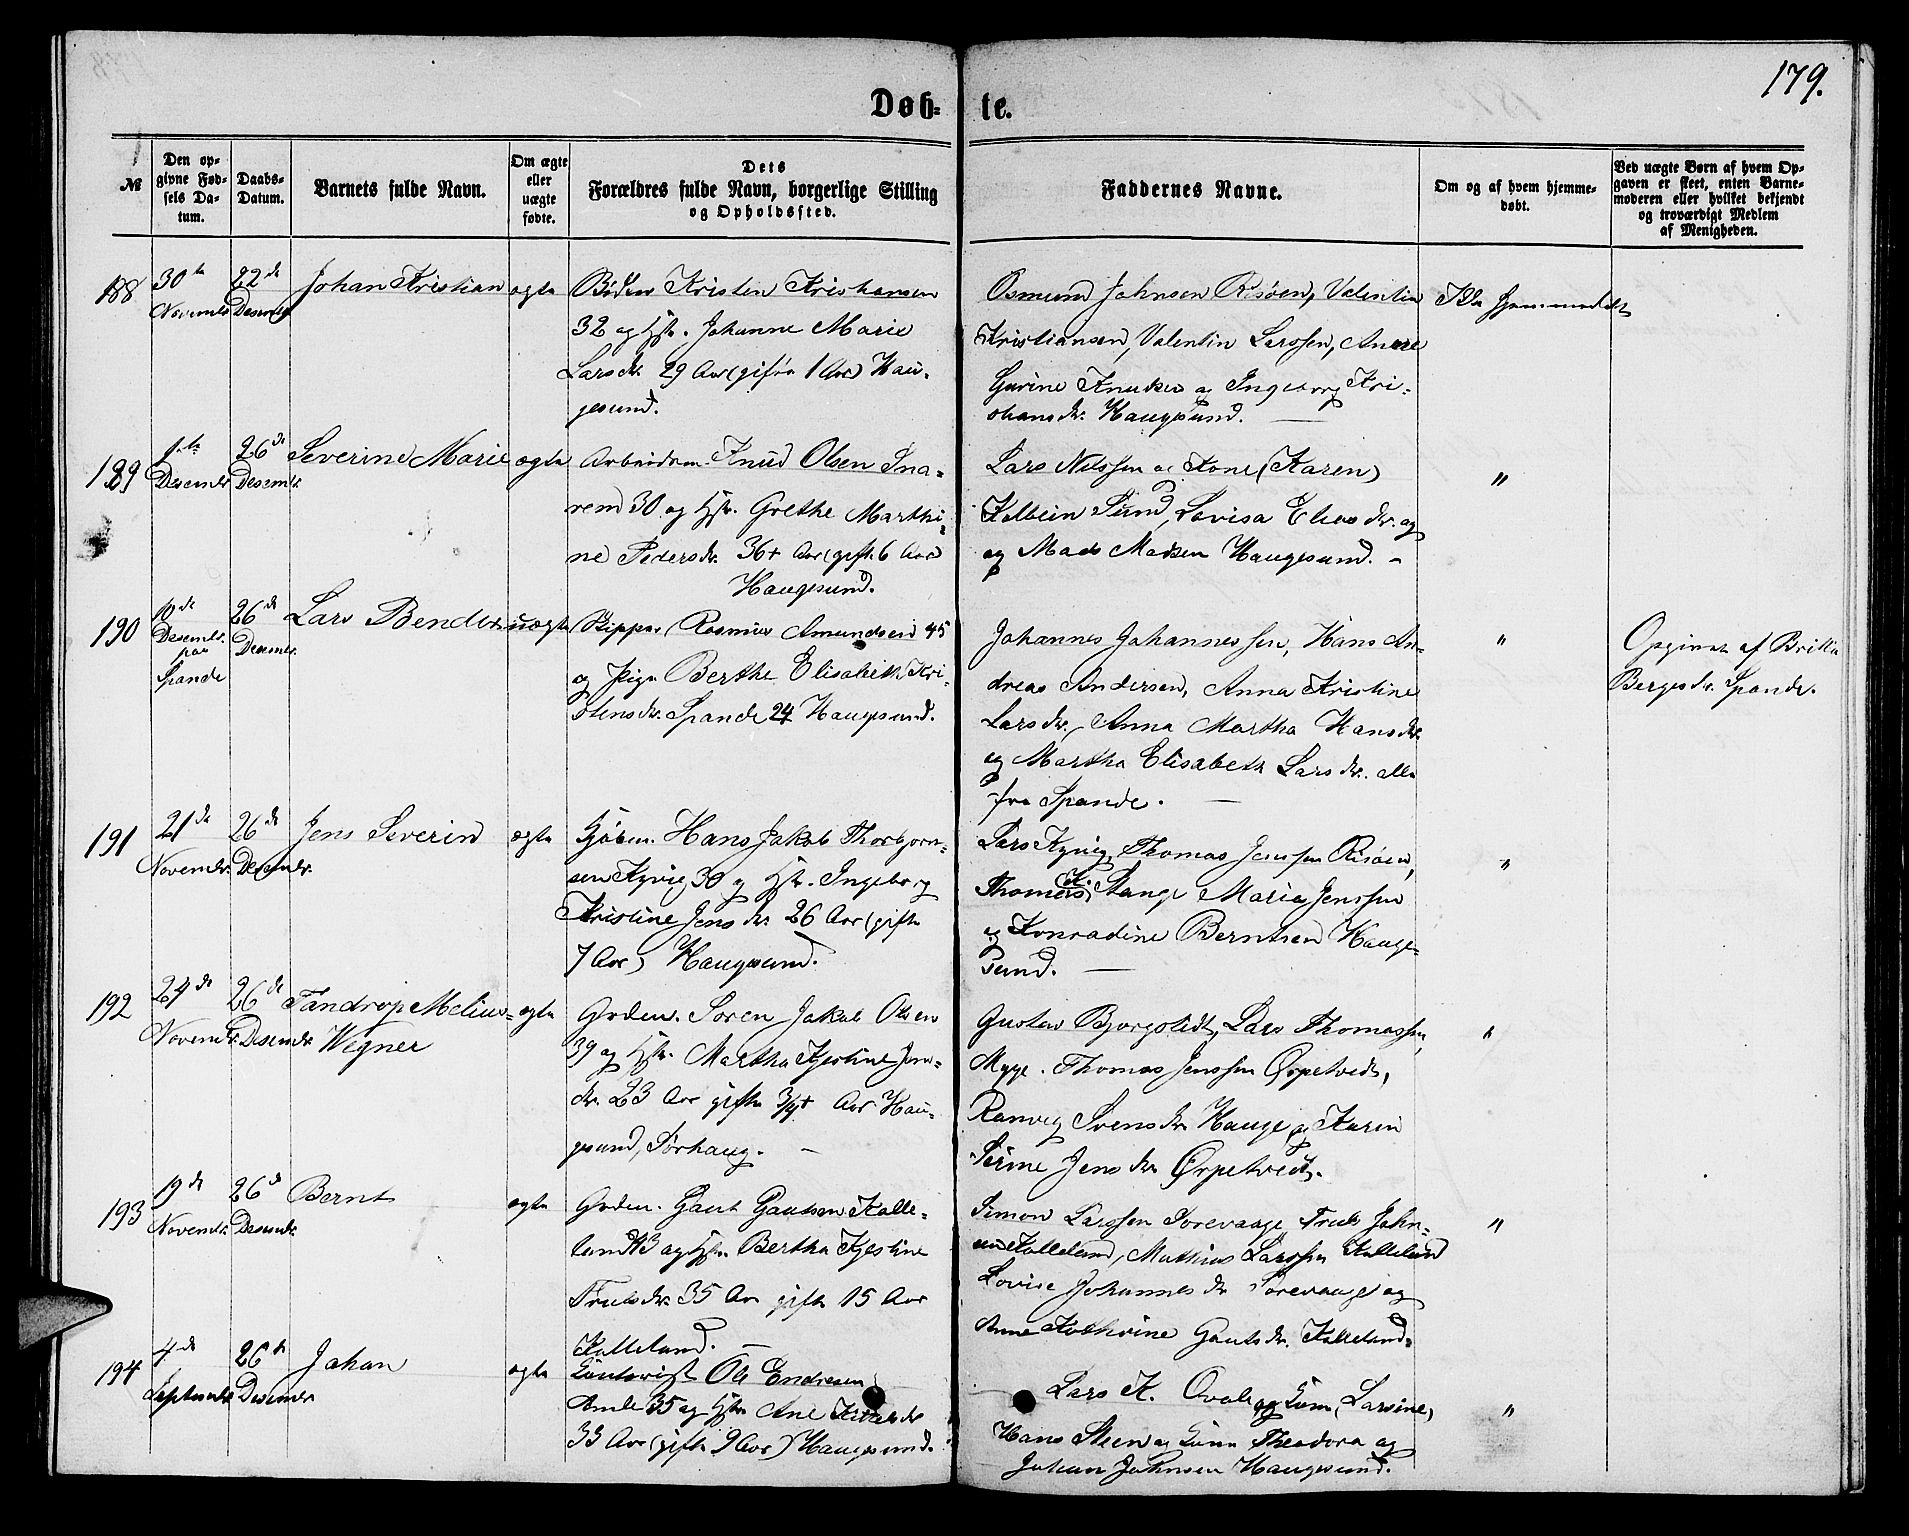 179.
Døb- te.
№
Den op-
givne Fød-
sels Da-
tum.
Daabs-
Datum.
Barnets fulde Navn.
Om ægte
eller
uægte
fødte.
Dets
Forældres fulde Navn, borgerlige Stilling
og Opholdssted.
Faddernes Navne.
Om og af hvem hjemme-
døbt.
Ved uægte Børn af hvem Op-
gaven er skeet, enten Barne-
moderen eller hvilket bekjendt
og troværdigt Medlem
af Menigheden.
188
30te
Novembr
22de
Desembr
Johan Kristian
ægte
Kristen Kristiansen
32 og Hstr. Johanne Marie
Larsdr. 29 Aar (gifte 1 Aar) Hau-
gesund.
Osmund Johnsen Risøen, Valentin
Kristiansen, Valentin Larssen, Anne
Gurine Knutsen og Ingeborg Kri-
stiansdr. Haugesund.
Ikke hjemmedøbt
189
1ste
Desembr
26de
Desembr.
Severine Marie
ægte
Arbeidsm. Knud Olsen Sna-
rem 30 og Hstr. Grethe Marthi-
ne Pedersdr. 36+ Aar (gifte 6 Aar)
Haugesund.
Lars Nilssen og Kone (Karen)
Kolbein Sund, Lovisa Eliasdr. og
og Mads Madsen Haugesund. -
"
190
10de
Desembr.
paa
Spande
26de
Desembr.
Lars Bender
uægte
Skipper Rasmus Amundsen 45
og Pige Berthe Elisabeth Kri-
stensdr. Spande 24 Haugesund.
Johannes Johannessen, Hans An-
dreas Andersen, Anna Kristine
Larsdr., Anna Martha Hansdr.
og Martha Elisabeth Larsdr. alle
fra Spande.
"
Opgivet af Britha
Bergesdr. Spande.
191
21de
Novembr.
26de
Desembr.
Jens Severin
ægte
Hans Jakob Thorbjørn-
sen Kyvig 30 og Hstr. Ingeborg
Kristine Jensdr. 26 Aar (gifte
7 Aar) Haugesund.
Lars Kyvig, Thomas Jenssen Risøen,
Thomas K. Stange Maria Jenssen
og Konradine Berntsen Hauge-
sund.
"
192
24de
Novembr.
26de
Desembr
Tandrop Melius
Wegner
ægte
Grdm. Søren Jakob Olsen
39 og Hstr. Martha Kjestine Jens-
dr. 23 Aar gifte 3/4+ Aar Hau-
gesund, Sørhaug.
Gustav Bjorgstedt, Lars Thomassen,
Myge. Thomas Jenssen Ørpetvedt,
Ranveg Svensdr. Hauge og Karen
Serine Jensdr. Ørpetvedt.
"
193
19de
Novembr.
26de
Desembr
Bernt
ægte
Grdm. Gaut Gautsen Kalle-
land 43 og Hstr. Bertha Kjestine
Trulsdr. 35 Aar gifte 15 Aar
Kalleland.
Simon Larssen Sørevaage Truls John-
sen Kalleland, Mathias Larssen Kalleland
Lovise Johannesdr Sørevaage og
Anne Kathrine Gautsdr. Kalleland.
"
194
4de
Septembr
26de
Desembr
Johan
ægte
Ole Endresen
35 og Hstr. Ane
33 Aar (gifte 9 Aar) Haugesund.
Lars K. (Larsine)
Hans Steen og Theodora og
Johan Johnsen Haugesund.
"